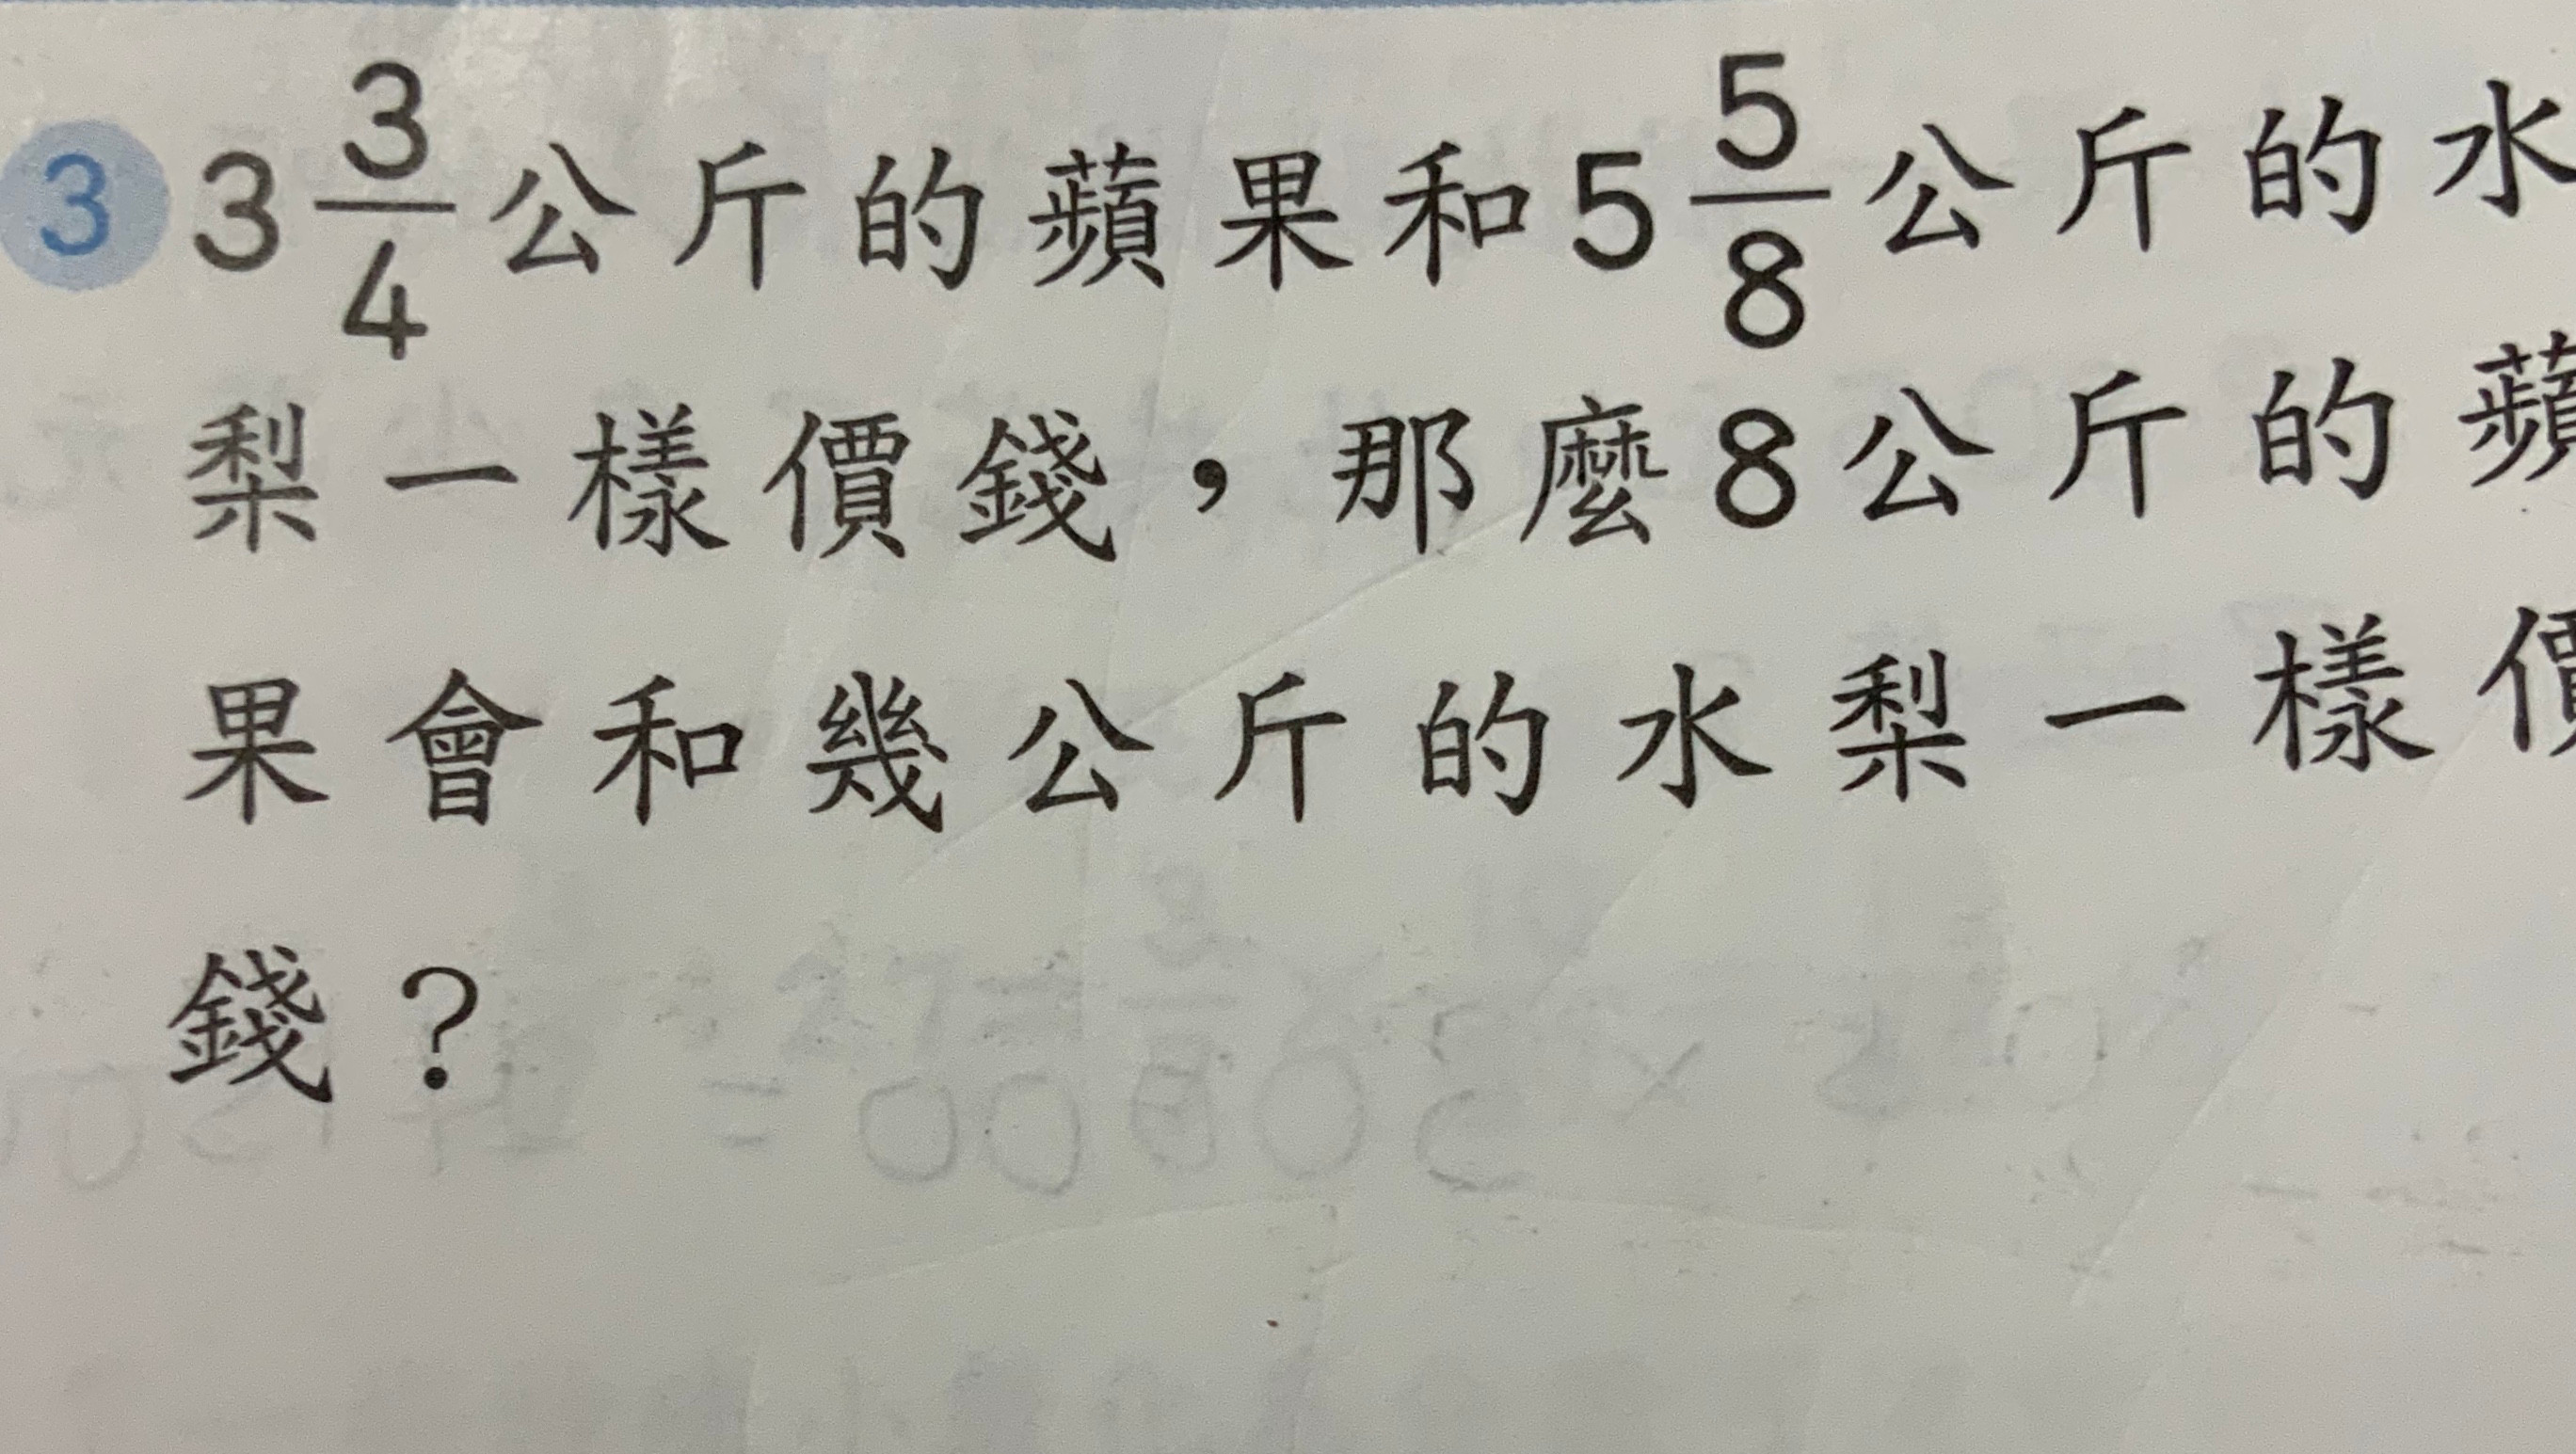 3 3 3/4公斤的蘋果和5 5/8公斤的水
梨一樣價錢，那麼8公斤的蘋
果會和幾公斤的水梨一樣價
錢？